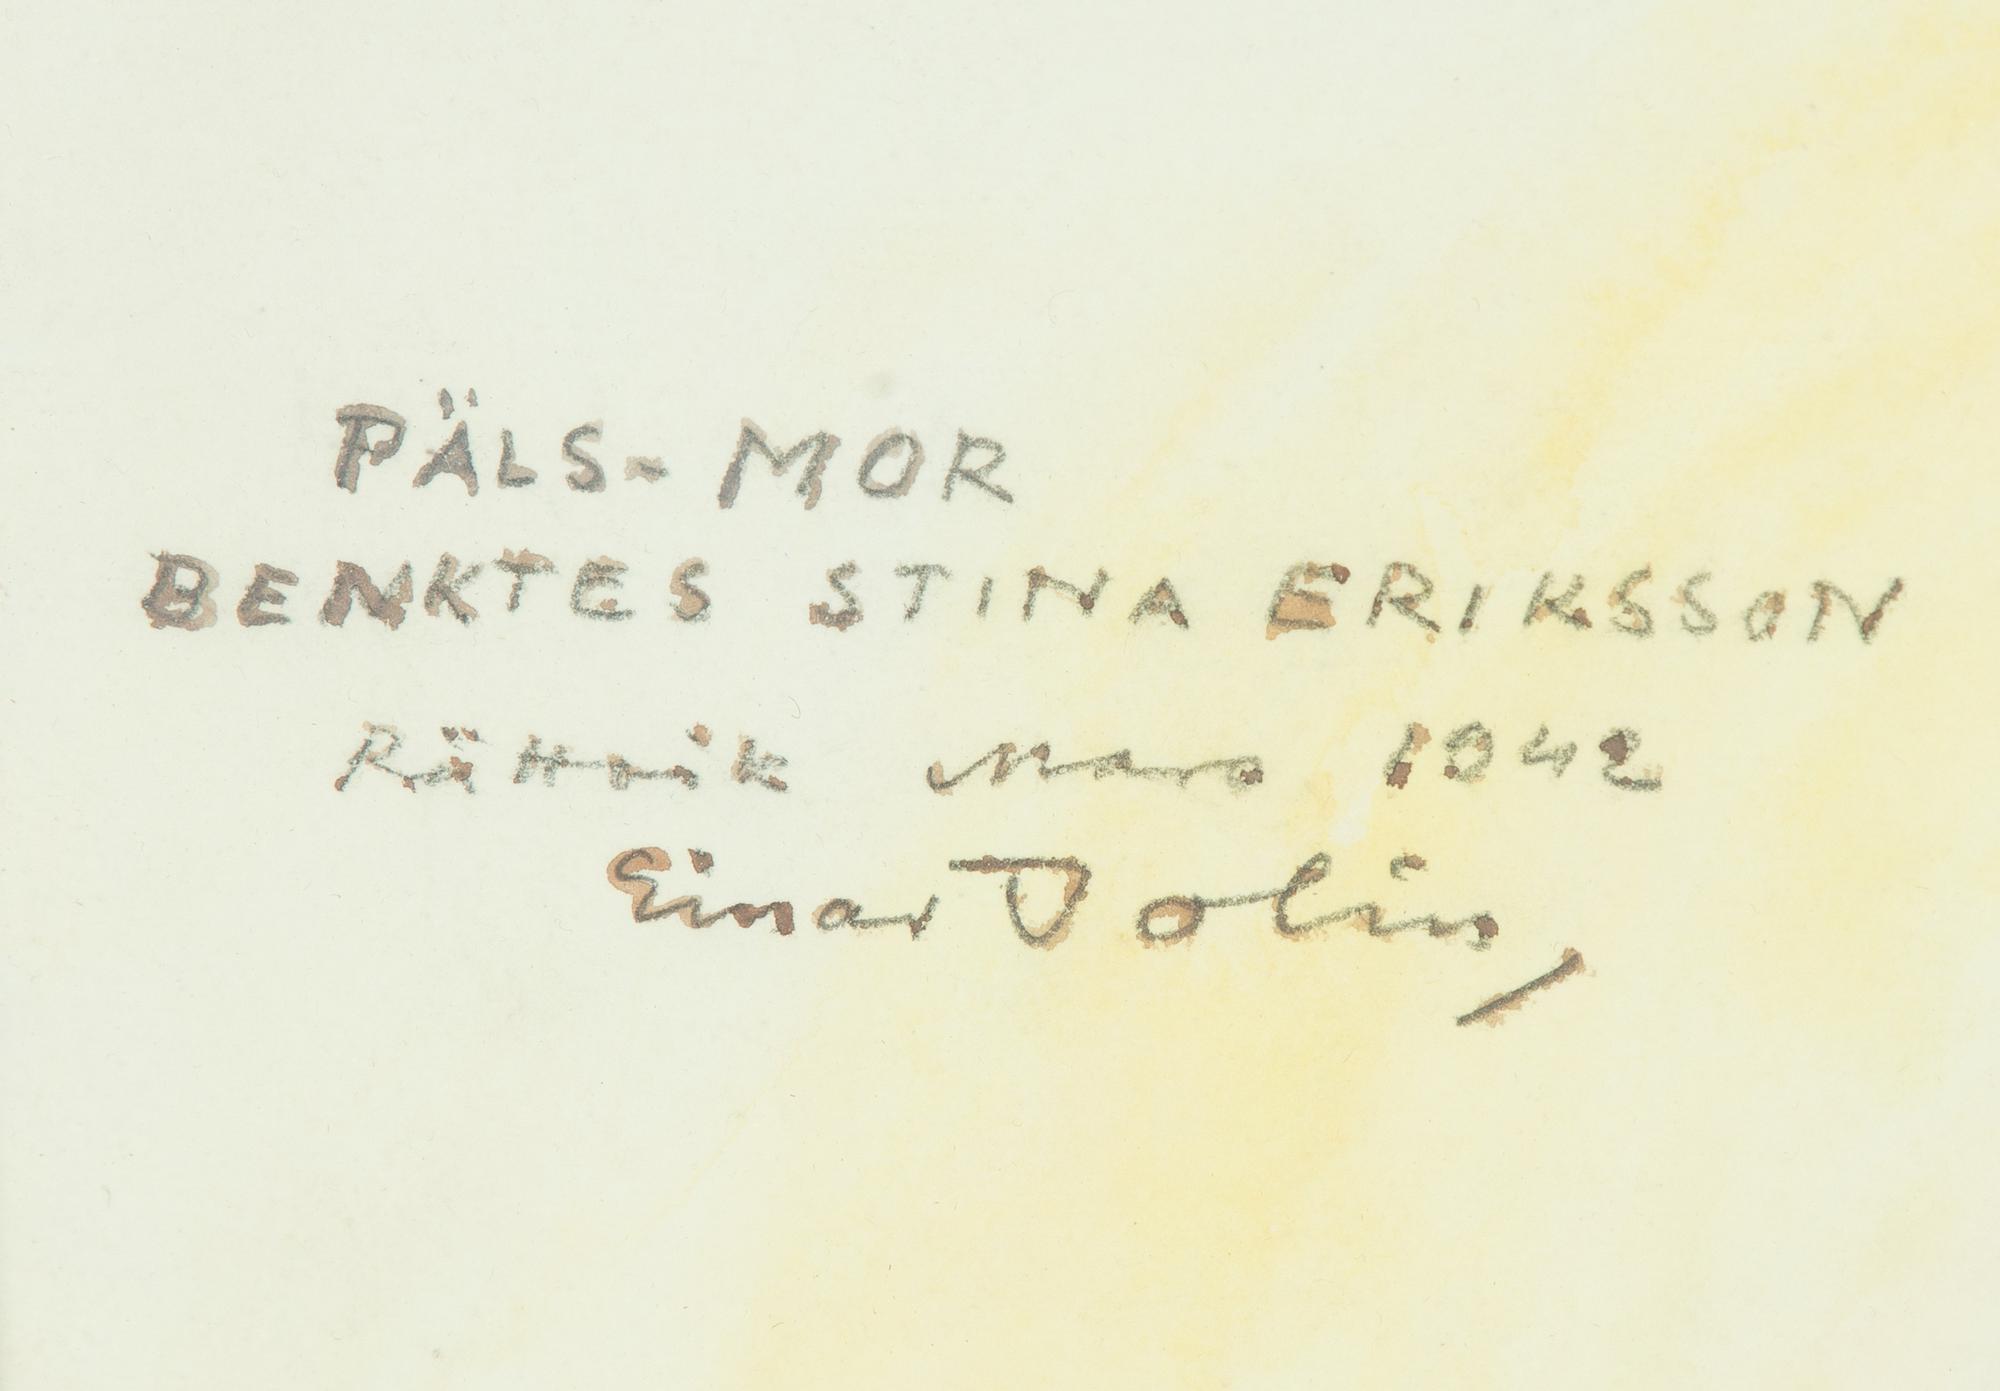 PÄLS-MOR
BENKTES STINA ERIKSSON
Rättvik Mars 1942
Einar Jolin